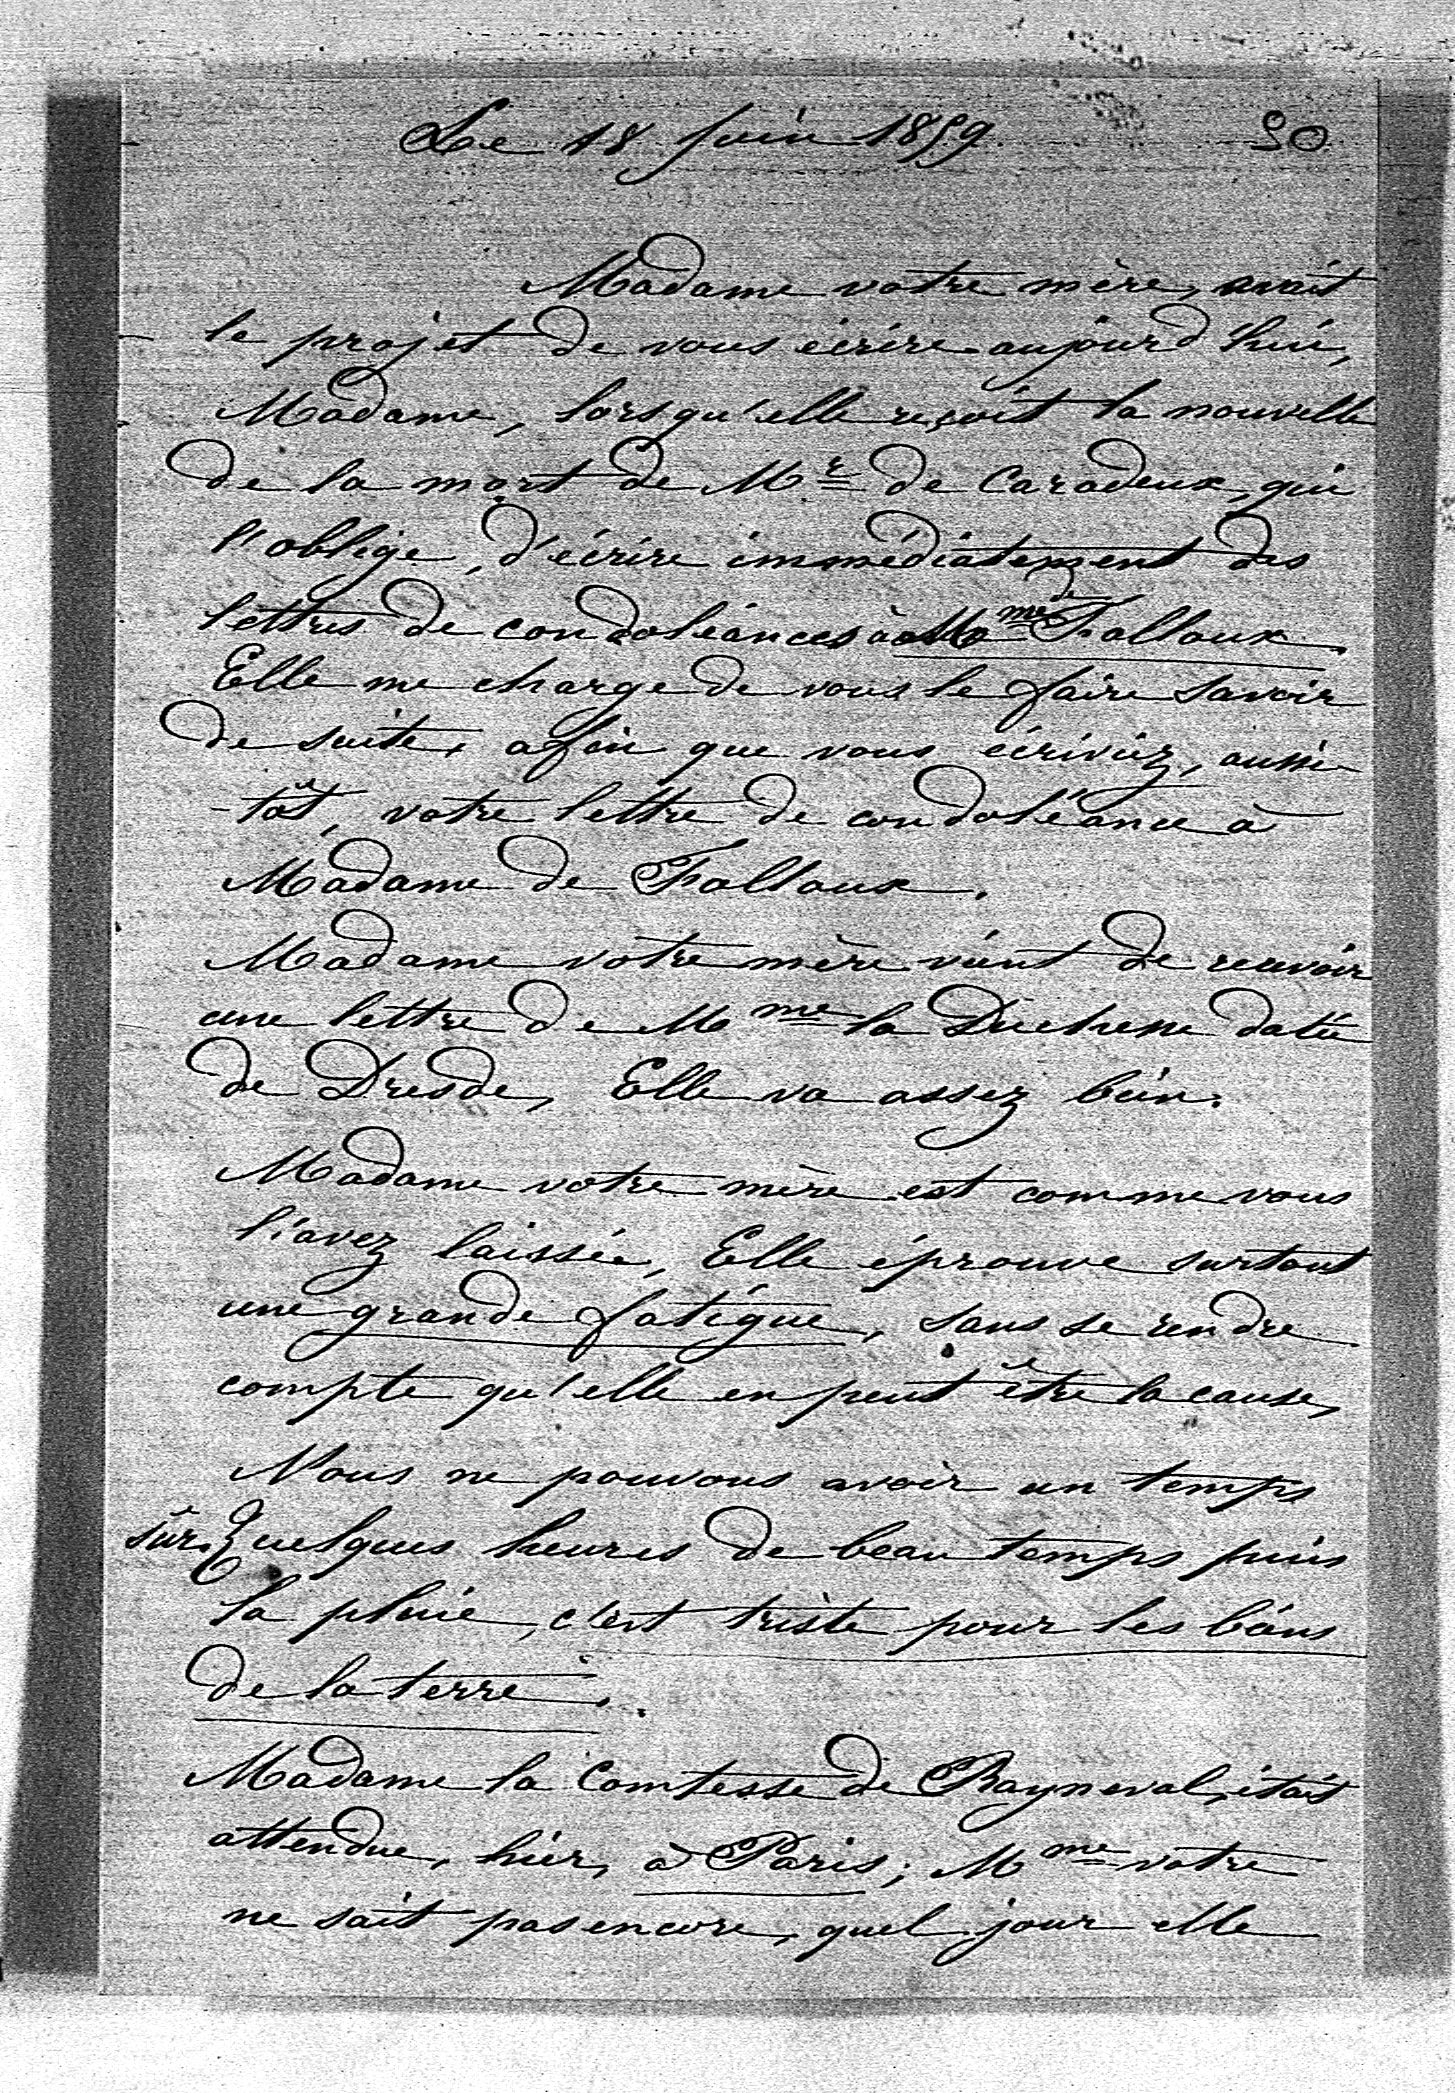 Le 18 Juin 1859. 50
Madame votre mère, avait
le projet de vous écrire aujourd'hui,
Madame, lorsqu'elle reçoit la nouvelle
de la mort de Mr de Caradeux, qui
l'oblige, d'écrire immédiatement des
lettres de condoléances à Mme de Falloux.
Elle me charge de vous le faire savoir
de suite, afin que vous écriviez, aussi-
-tôt, votre lettre de condoléance à
Madame de Falloux.
Madame votre mère vient de recevoir
une lettre de Mme la Duchesse datée
de Dresde, Elle va assez bien.
Madame votre mère est comme vous
l'avez laissée, Elle éprouve surtout
une grande fatigue, sans se rendre
compte qu'elle en peut être la cause,
Nous ne pouvons avoir un temps
sûr. Quelques heures de beau temps puis
la pluie, c'est triste pour les biens
de la terre.
Madame la Comtesse de Rayneval, était
attendue, hier, à Paris; Mme votre
ne sait pas encore, quel jour elle